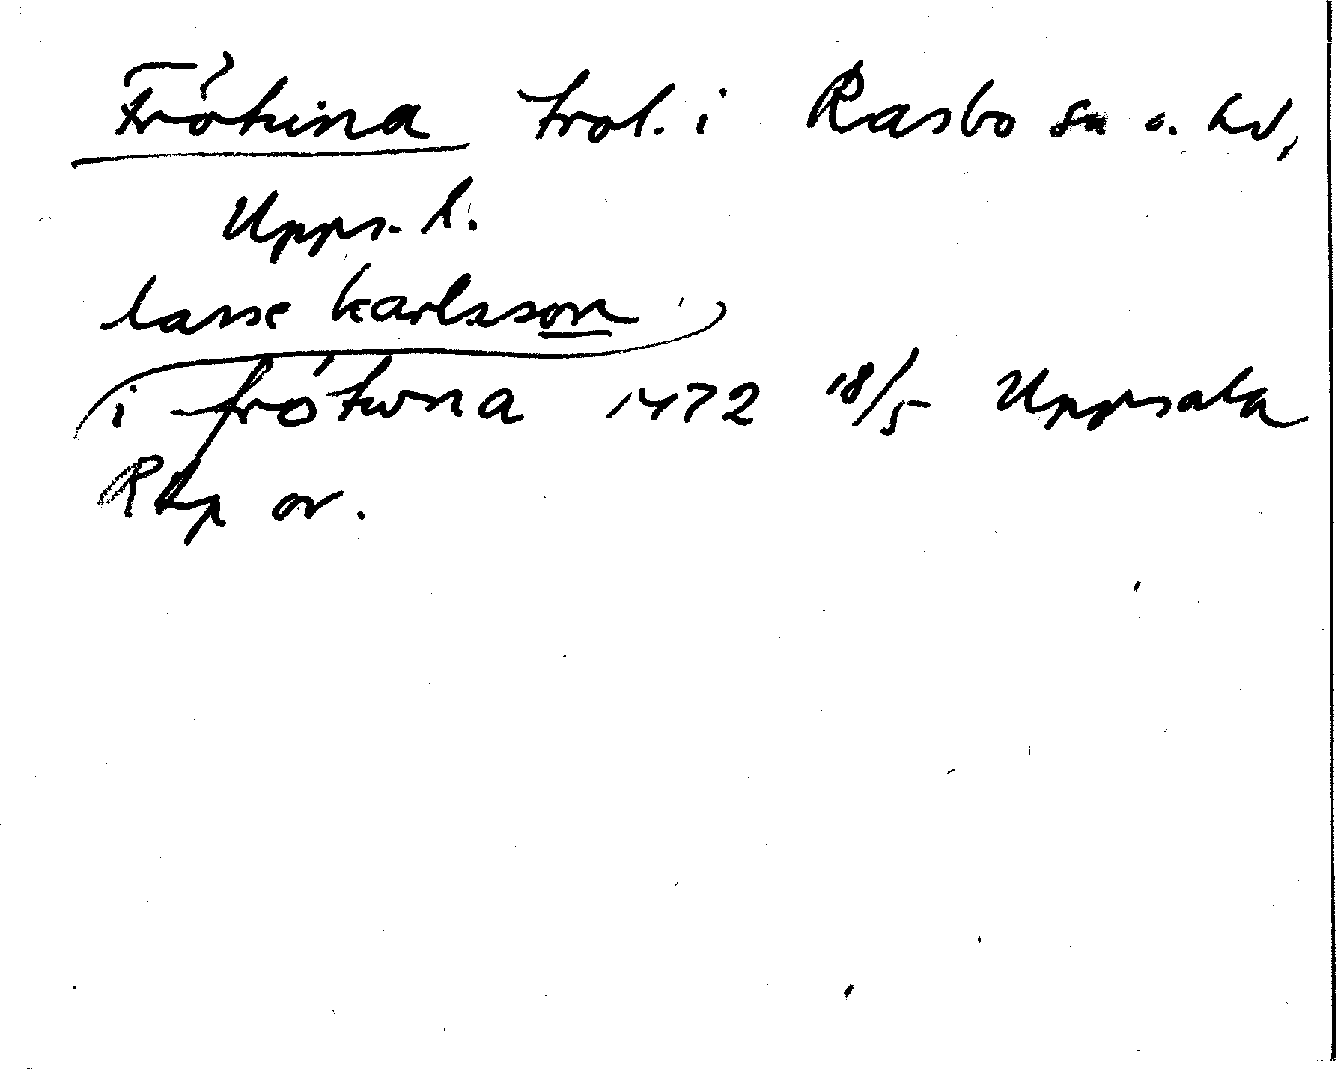 Frötuna trol. i Rasbo sn o. hd,
Upps. l.
lasse karlsson
i frötwna 1472 18/5 Uppsala
RAp or.